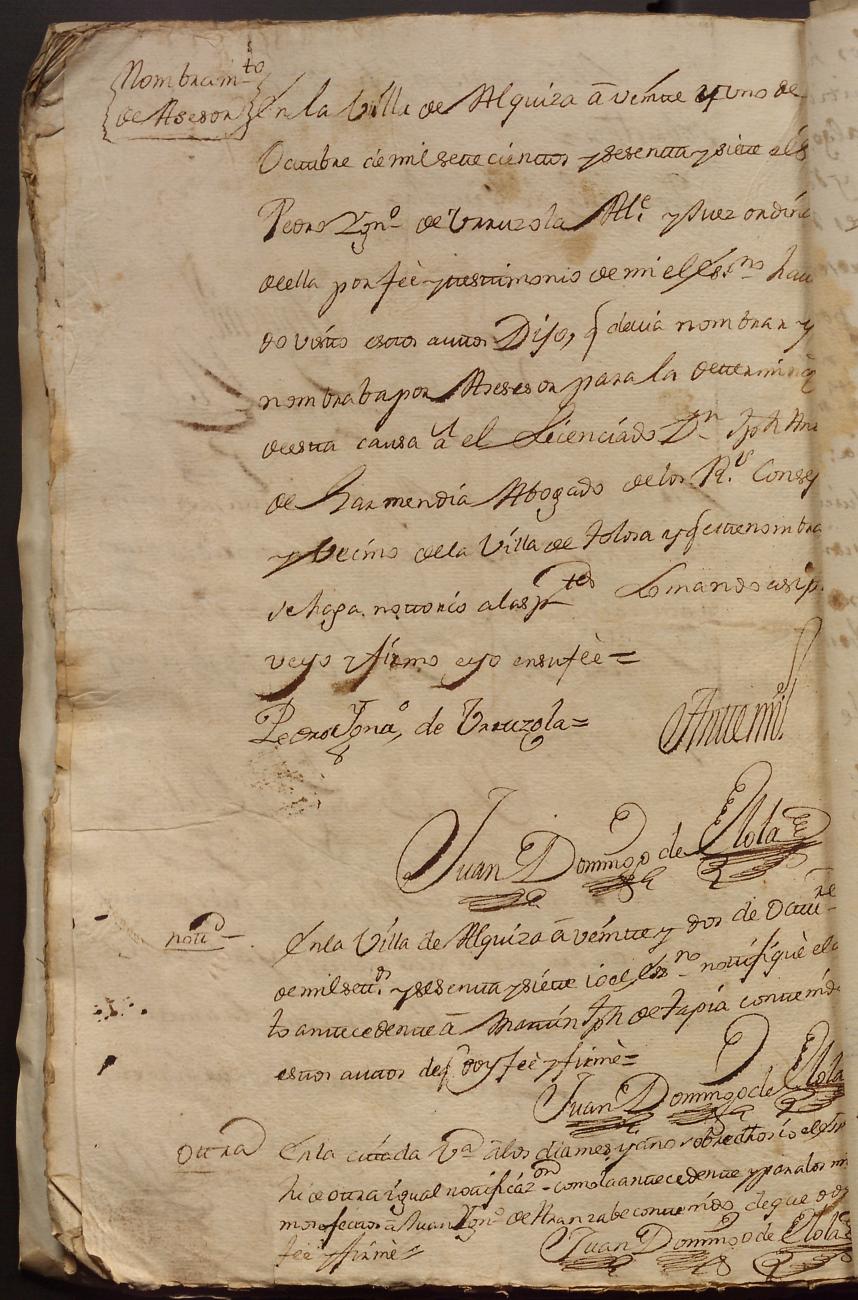 Nombram.to
de Asesor
En la Villa de Alquiza â veinte y uno de
Octubre de mil sete cientos y sesenta y siete el S
Pedro Ygn.o de Urruzola Al.e y Juez ordina
de ella por feè y testimonio de mi el Ess.no hau
do visto estos autos Dijo, q devia nombrar y
nombraba por Asesor para la determinâ
de esta causa â el Licenciado D.n Jph An
de Garmendia Abogado de los R.s Consej
y Vecino de la Villa de Tolosa y q este nombra
se haga notorio a las p.tes Lo mando asi p
veyo y firmo e yo en su feè =
Pedro Ygna.o de Urruzola =
Ante mi
Juan Domingo de Elola
noti.on
En la Villa de Alquiza â veinte y dos de Octu.re
de mil set.os y sesenta y siete io el Ess.no notifiquè el a
to antecedente â Martin Jph de Tapia contenido
estos autos de q doy feè y firmè =
Juan Domingo de Elola
Ottra
En la citada V.a â los dia mes y año sobre dhos io el Ess
hice otra igual notificaz.on como la antecedente y para los mi
mos efectos a Juan Ygn.o de Aranzabe contenido, de que doy
feè y firmè =
Juan Domingo de Elola